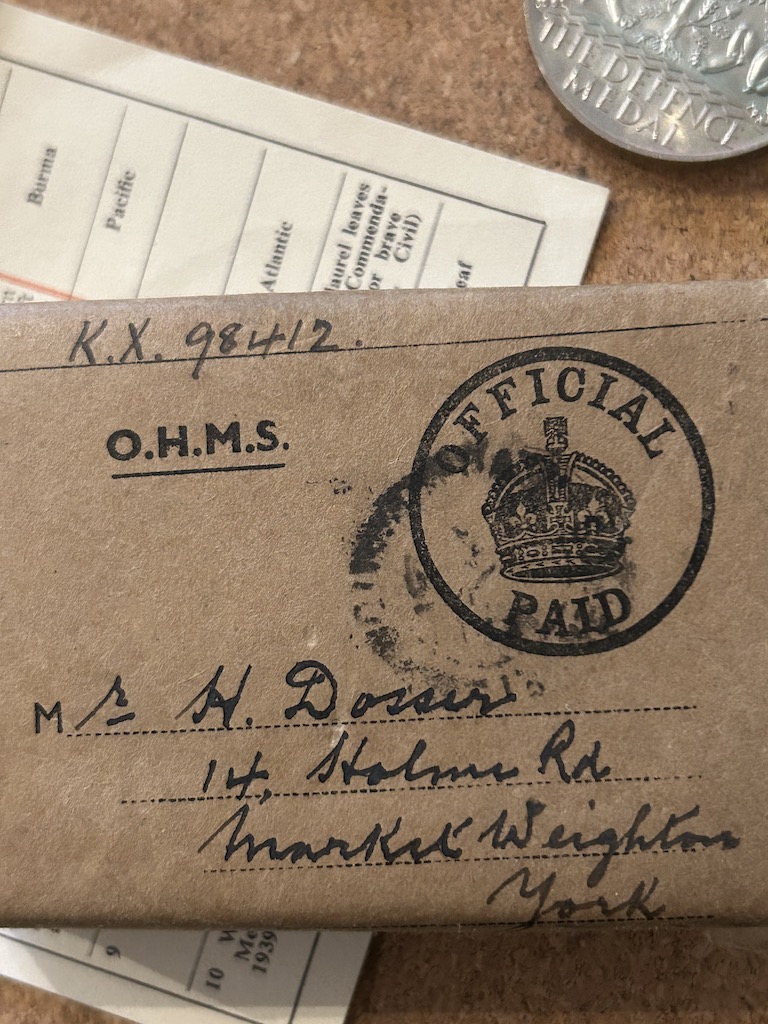 THE DEFENCE
MEDAL
Burma
Pacific
Atlantic
laurel leaves
Commenda-
or brave
Civil)
eaf
K.X. 98412.
O.H.M.S.
OFFICIAL
PAID
Mr H. Dosser
14, Holme Rd
Market Weighton
York
9
10
1939